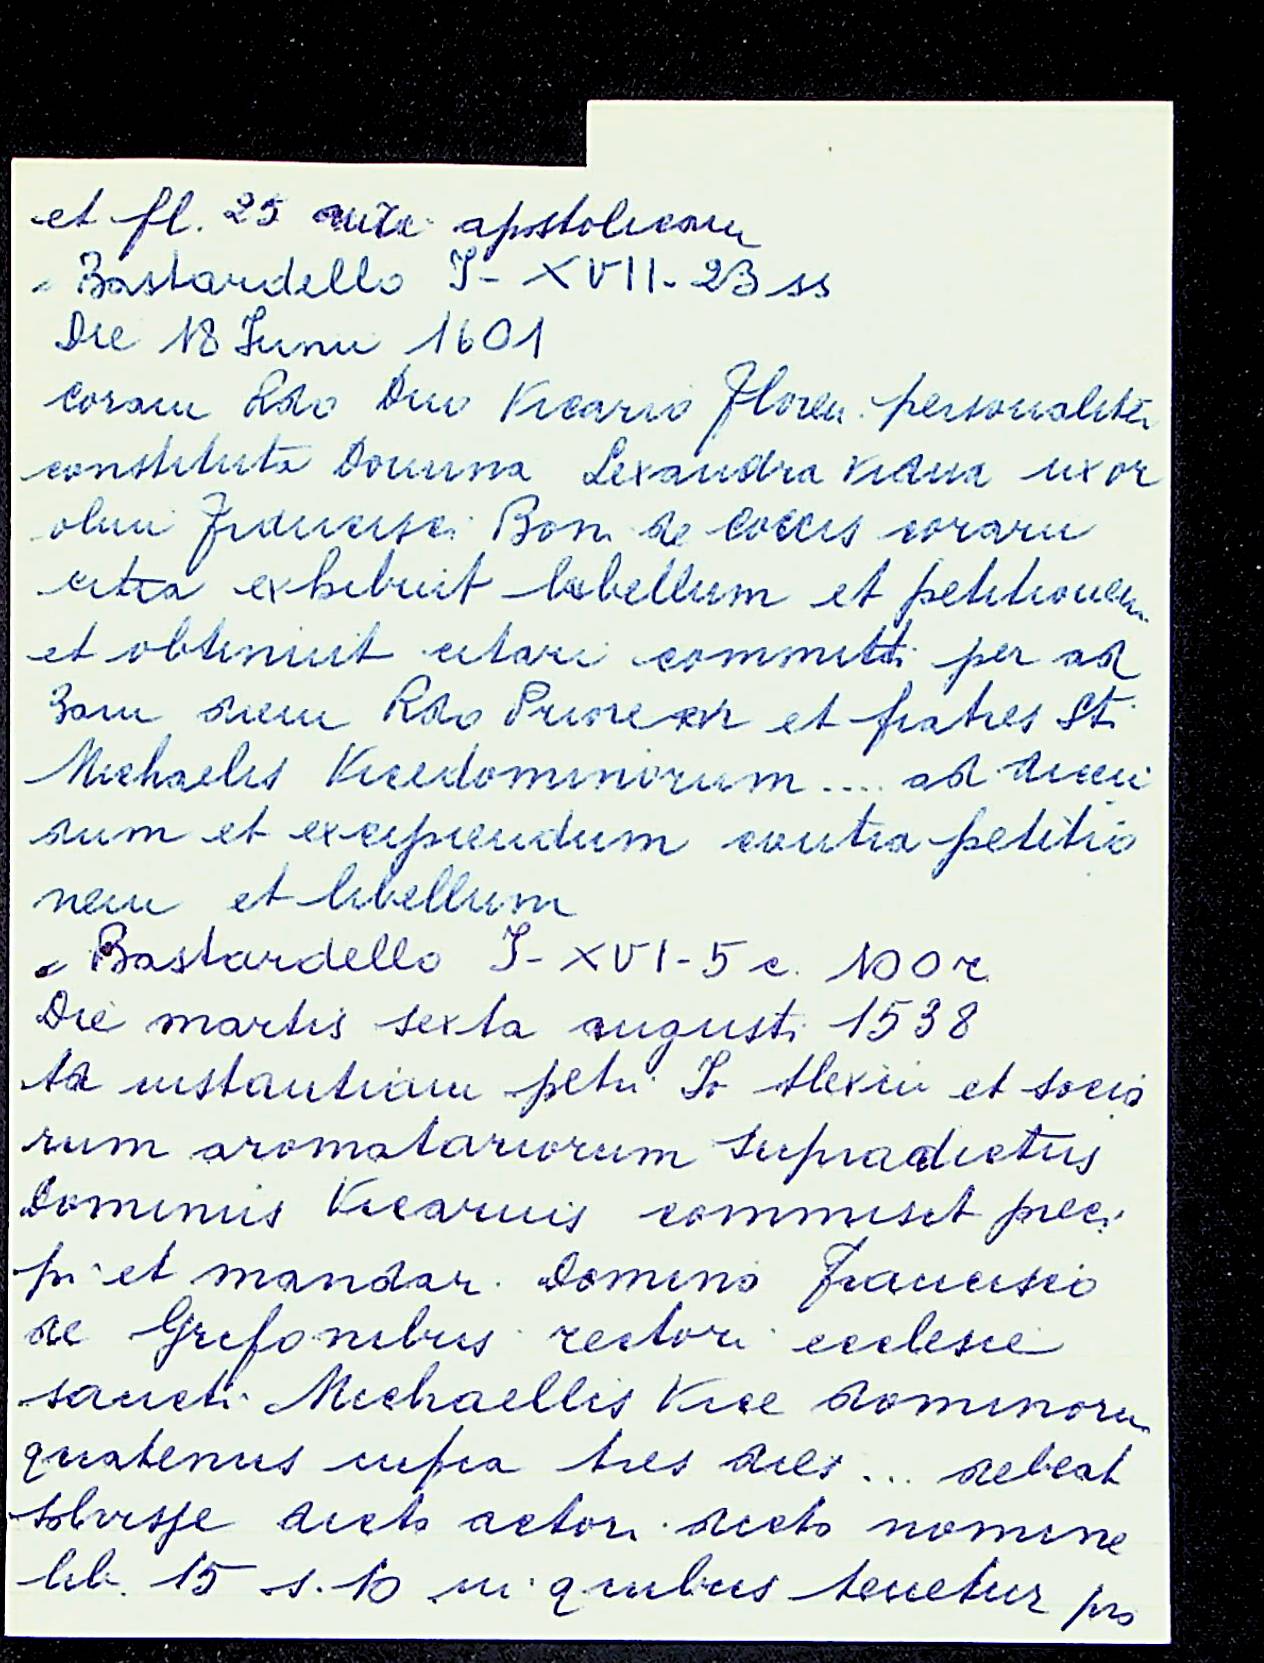 et fl. 25 apostolicam
- Bastardello I - XVII - 23 ss
Die 18 Junii 1601
coram Rdo Dno Vicario Floren. personaliter
constituta Domina Lexandra vidua uxor
olim Francisci Boni de Coccis coram
citra exhibuit libellum et petitionem
et obtinuit citari committi per ad
3am diem Rdo Priorem et fratres Sti
Michaelis Vicedominorum .... ad dicen
dum et excipiendum contra petitio
nem et libellum
- Bastardello I - XVI - 5 c. 100 r
Die martis sexta augusti 1538
Ad instantiam petri Jo Alexii et socio
rum aromatariorum supradictus
Dominus Vicarius commisit preci
pi et mandar. Domino Francisco
de Grifonibus rectori ecclesie
sancti Michaellis Vice dominoru
quatenus infra tres dies ... debeat
solvisse dicto actori dicto nomine
lib. 15 s. 10 in quibus tenetur pro